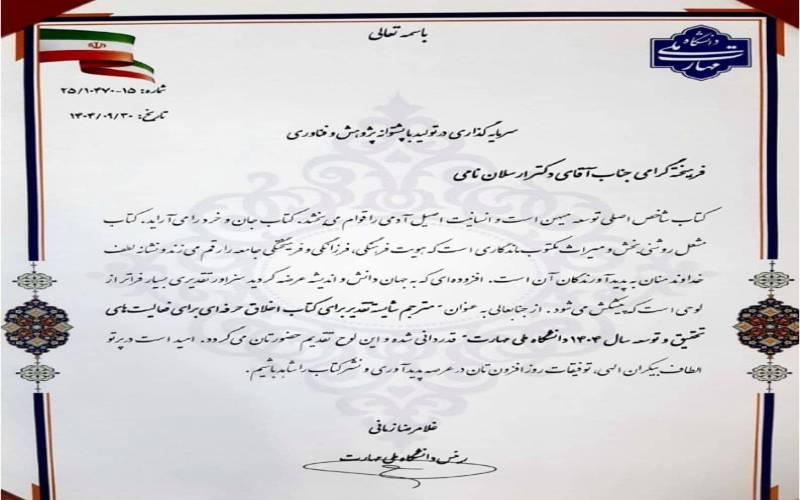 باسمه تعالی
دانشگاه ملی مهارت
شماره: ۱۵-۲۵/۱۰۴۷۰
تاریخ: ۱۴۰۴/۰۹/۳۰
سرمایه گذاری در تولید با پشتوانه پژوهش و فناوری
فریخته گرامی جناب آقای دکتر ارسلان نامی
کتاب شاخص اصلی توسعه میهن است و انسانیت اصیل آدمی را قوام می بخشد. کتاب جان و خرد را می آراید. کتاب
مشعل روشنی بخش و میراث مکتوب ماندگاری است که هویت فرهنگی، فرزانگی و فریختگی جامعه را رقم می زند و نشانه لطف
خداوند منان به پدیدآورندگان آن است. افزوده ای که به جهان دانش و اندیشه عرضه کردید سزاوار تقدیری بسیار فراتر از
لوحی است که پیشکش می شود. از جنابعالی به عنوان "مترجم شایسته تقدیر برای کتاب اخلاق حرفه ای برای فعالیت های
تحقیق و توسعه سال ۱۴۰۴ دانشگاه ملی مهارت" قدردانی شده و این لوح تقدیم حضورتان می گردد. امید است در پرتو
الطاف بیکران الهی، توفیقات روزافزون تان در عرصه پدیدآوری و نشر کتاب را شاهد باشیم.
غلامرضا زمانی
رئیس دانشگاه ملی مهارت